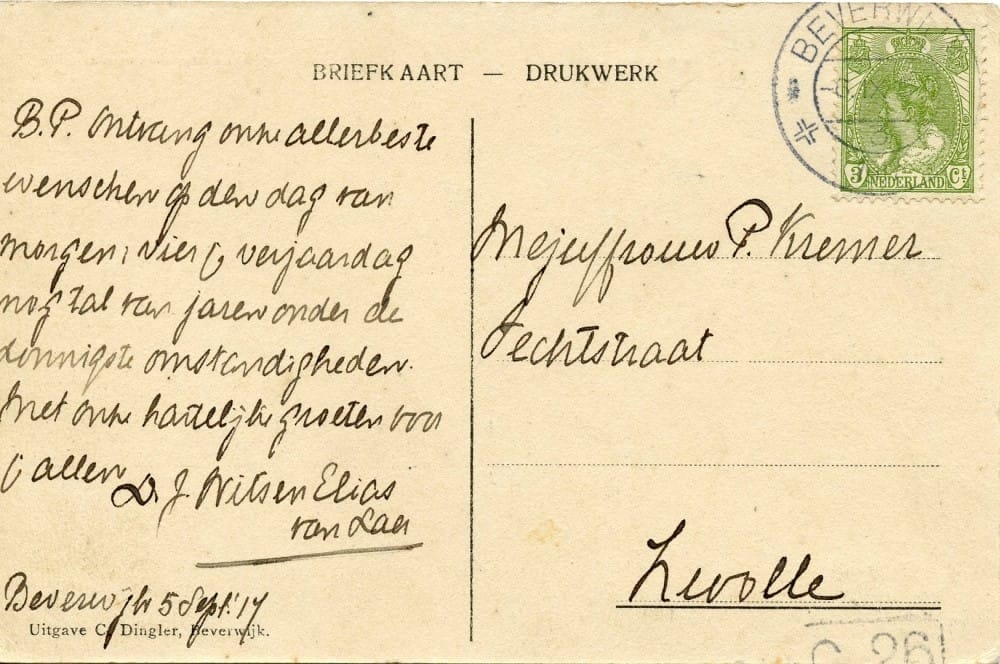 BRIEFKAART — DRUKWERK
B.P. Ontvang onze allerbeste
wenschen op den dag van
morgen; vier Uw verjaardag
nog tal van jaren onder de
zonnigste omstandigheden.
Met onze hartelijke groeten voor
U allen
J. Witsen Elias
van Laer
Beverwijk 5 Sept. '17
Uitgave C. Dingler, Beverwijk.
BEVERWI
3 Ct
NEDERLAND
Mejuffrouw P. Kremer
Vechtstraat
Zwolle
C 26